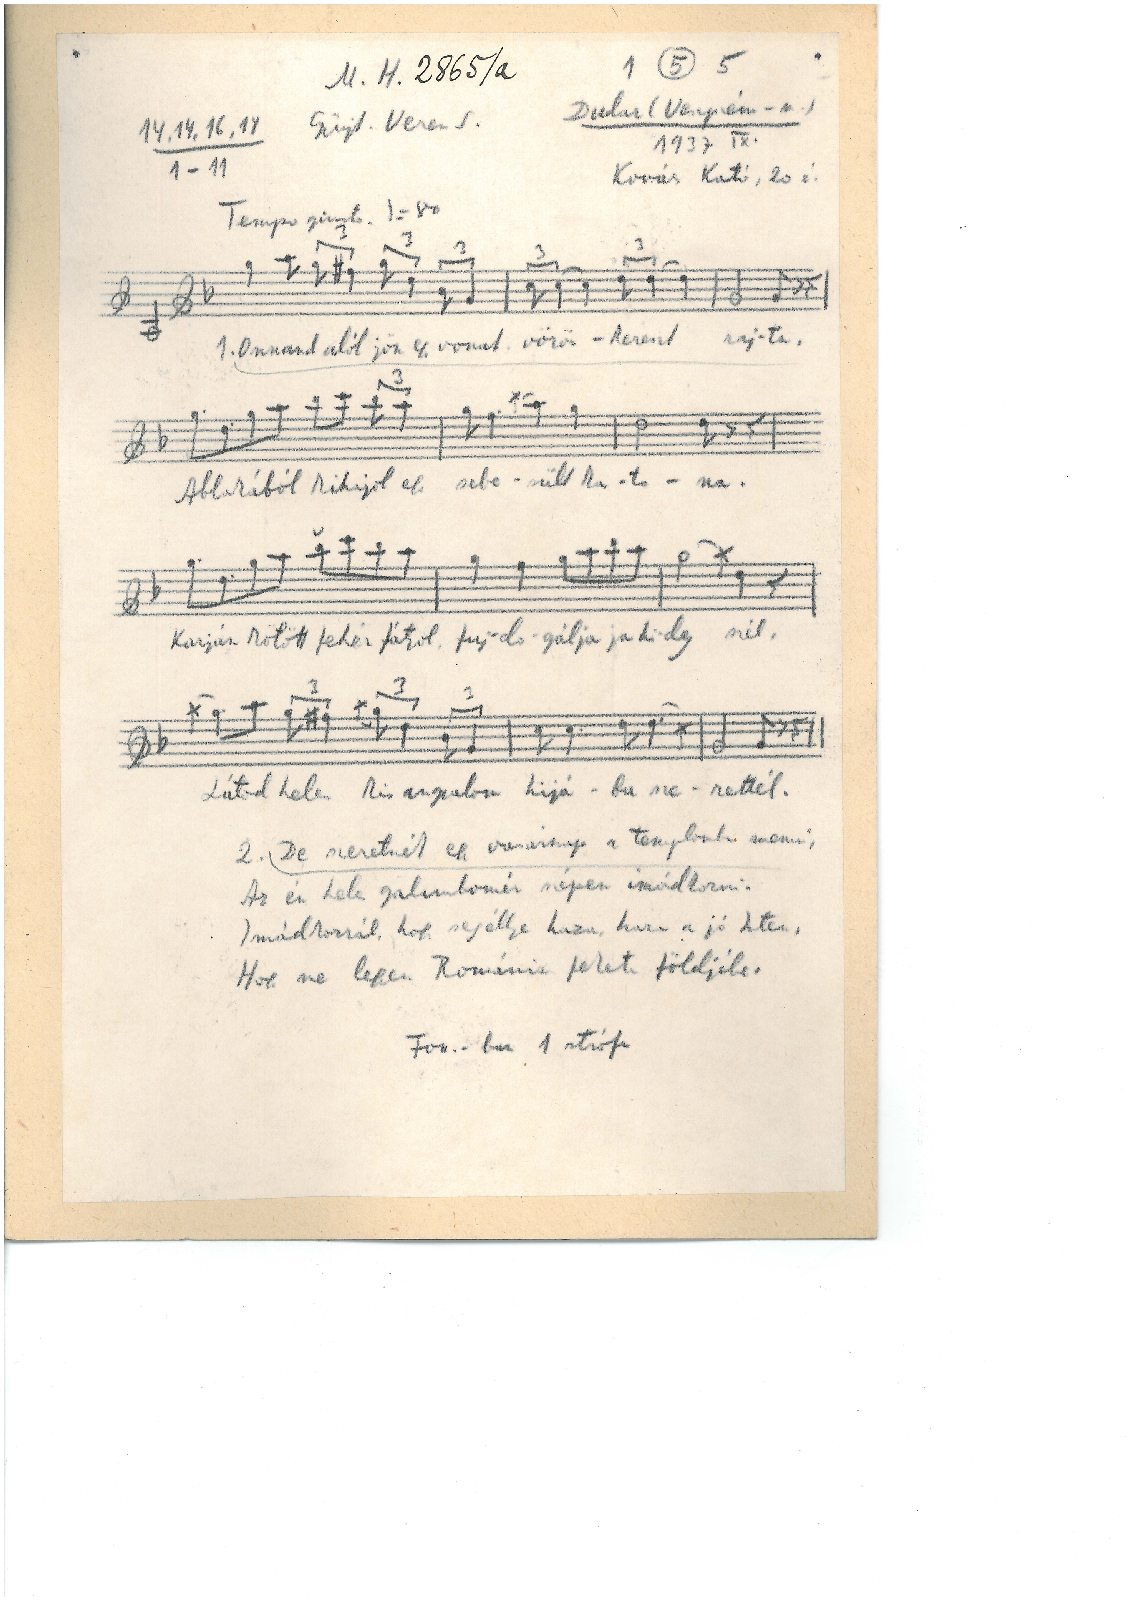 M. H. 2865/a
1 (5) 5
14, 14, 16, 14
1 - 11
Gyüjt. Veress S.
Dudar (Veszprém - m.)
1937 IX.
Kovács Kató, 20 é.
Tempo giusto. ♩= 80
3 3 3 3 3
1. Onnand alól jön egy vonat. vörös - kereszt raj-ta.
3
Ablakából kihajol egy sebe - sült ka - to - na.
Karján kötött fehér fátyol, fuj-do-gálja ja hi-deg szél.
3 3 3
Látod kis angyalom hijá - ba sze - rettél.
2. De szeretnék egy vasárnap a templomba menni,
Az én galambomér szépen imádkozni.
Imádkozzál, hogy segéljye haza, haza a jó Isten,
Hogy ne legyen Románia fekete földjébe.
Fon.- ban 1 strófa